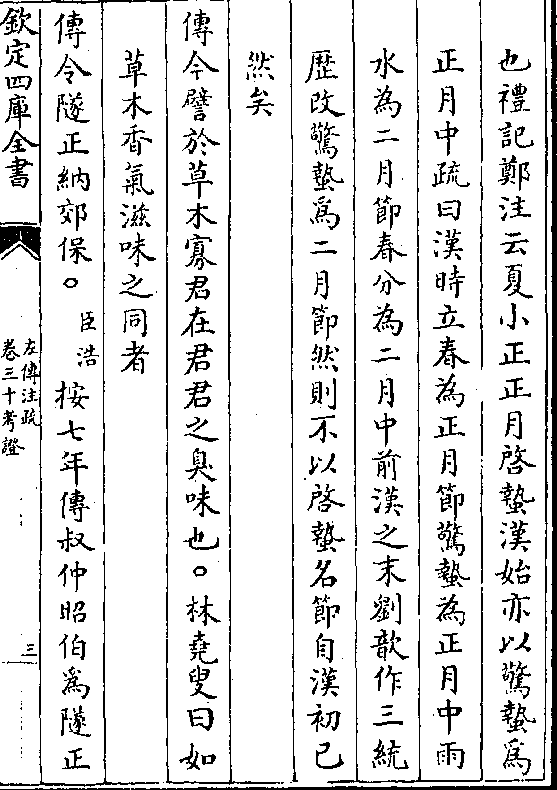 也禮記鄭注云夏小正正月啓蟄漢始亦以驚蟄爲
正月中疏曰漢時立春為正月節驚蟄為正月中雨
水為二月節春分為二月中前漢之末劉歆作三統
歷改驚蟄爲二月節然則不以啓蟄名節自漢初已
然矣
傳今譬於草木寡君在君君之臭味也。林堯叟曰如
草木香氣滋味之同者
傳令隧正納郊保。臣浩按七年傳叔仲昭伯爲隧正
欽定四庫全書
左傳注疏
卷三十考證
三